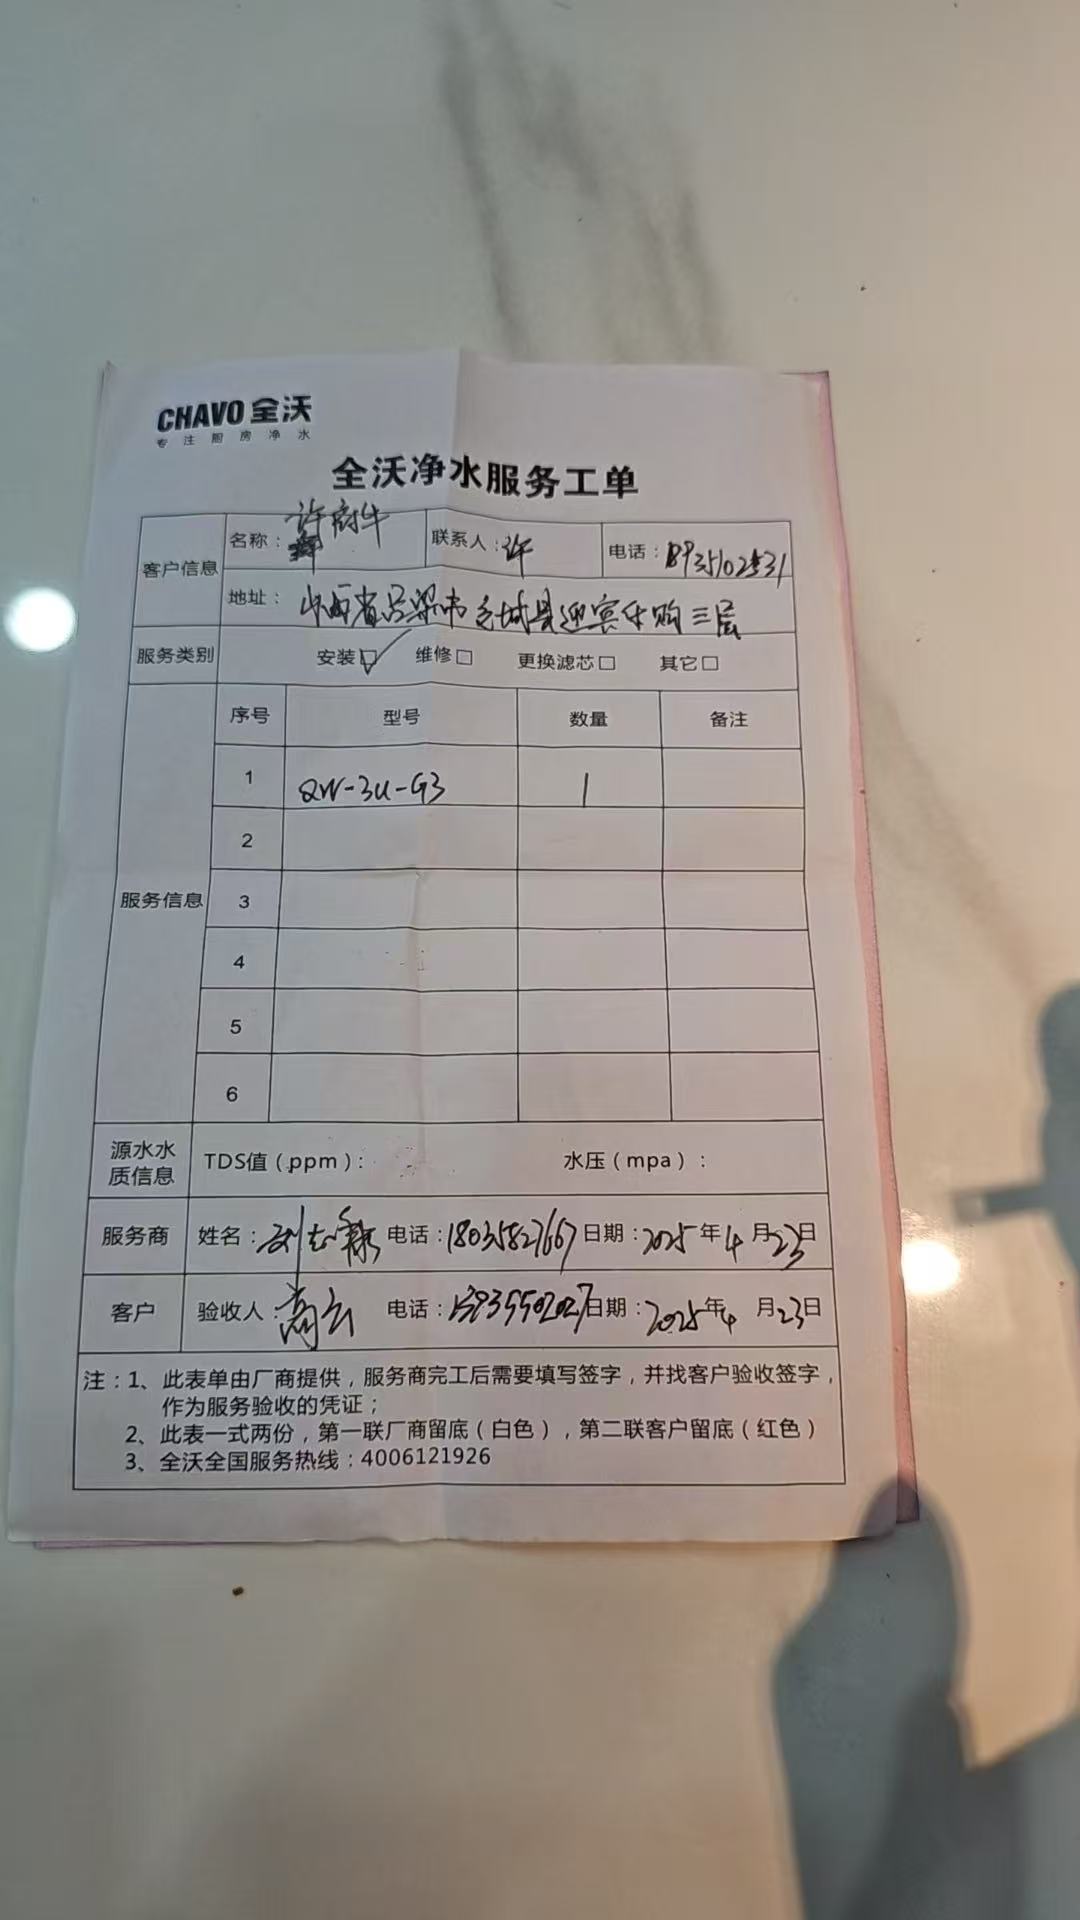 CHAVO 全沃
专注厨房净水
全沃净水服务工单
客户信息
名称：许府牛
联系人：许
电话：
地址：山西省吕梁市交城县迎宾乐购三层
服务类别
安装☑ 维修□ 更换滤芯□ 其它□
服务信息
序号 型号 数量 备注
1 QW-3U-G3 1
2
3
4
5
6
源水水质信息
TDS值（ppm）： 水压（mpa）：
服务商 姓名：刘志 电话：18035827667 日期：2025年4月23日
客户 验收人：高云 电话： 日期：2025年4月23日
注：1、此表单由厂商提供，服务商完工后需要填写签字，并找客户验收签字，
作为服务验收的凭证；
2、此表一式两份，第一联厂商留底（白色），第二联客户留底（红色）
3、全沃全国服务热线：4006121926